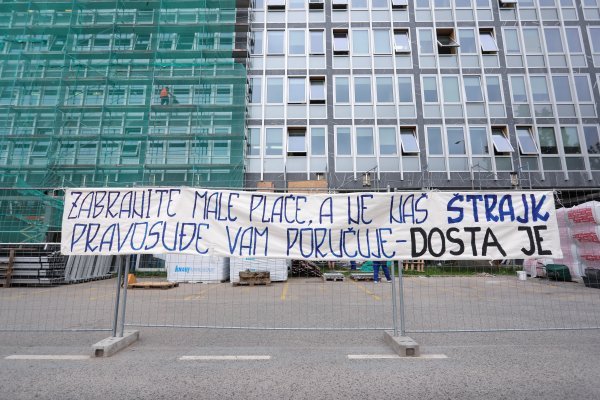 ZABRANITE MALE PLAĆE, A NE NAŠ ŠTRAJK
PRAVOSUĐE VAM PORUČUJE - DOSTA JE
KNAUF